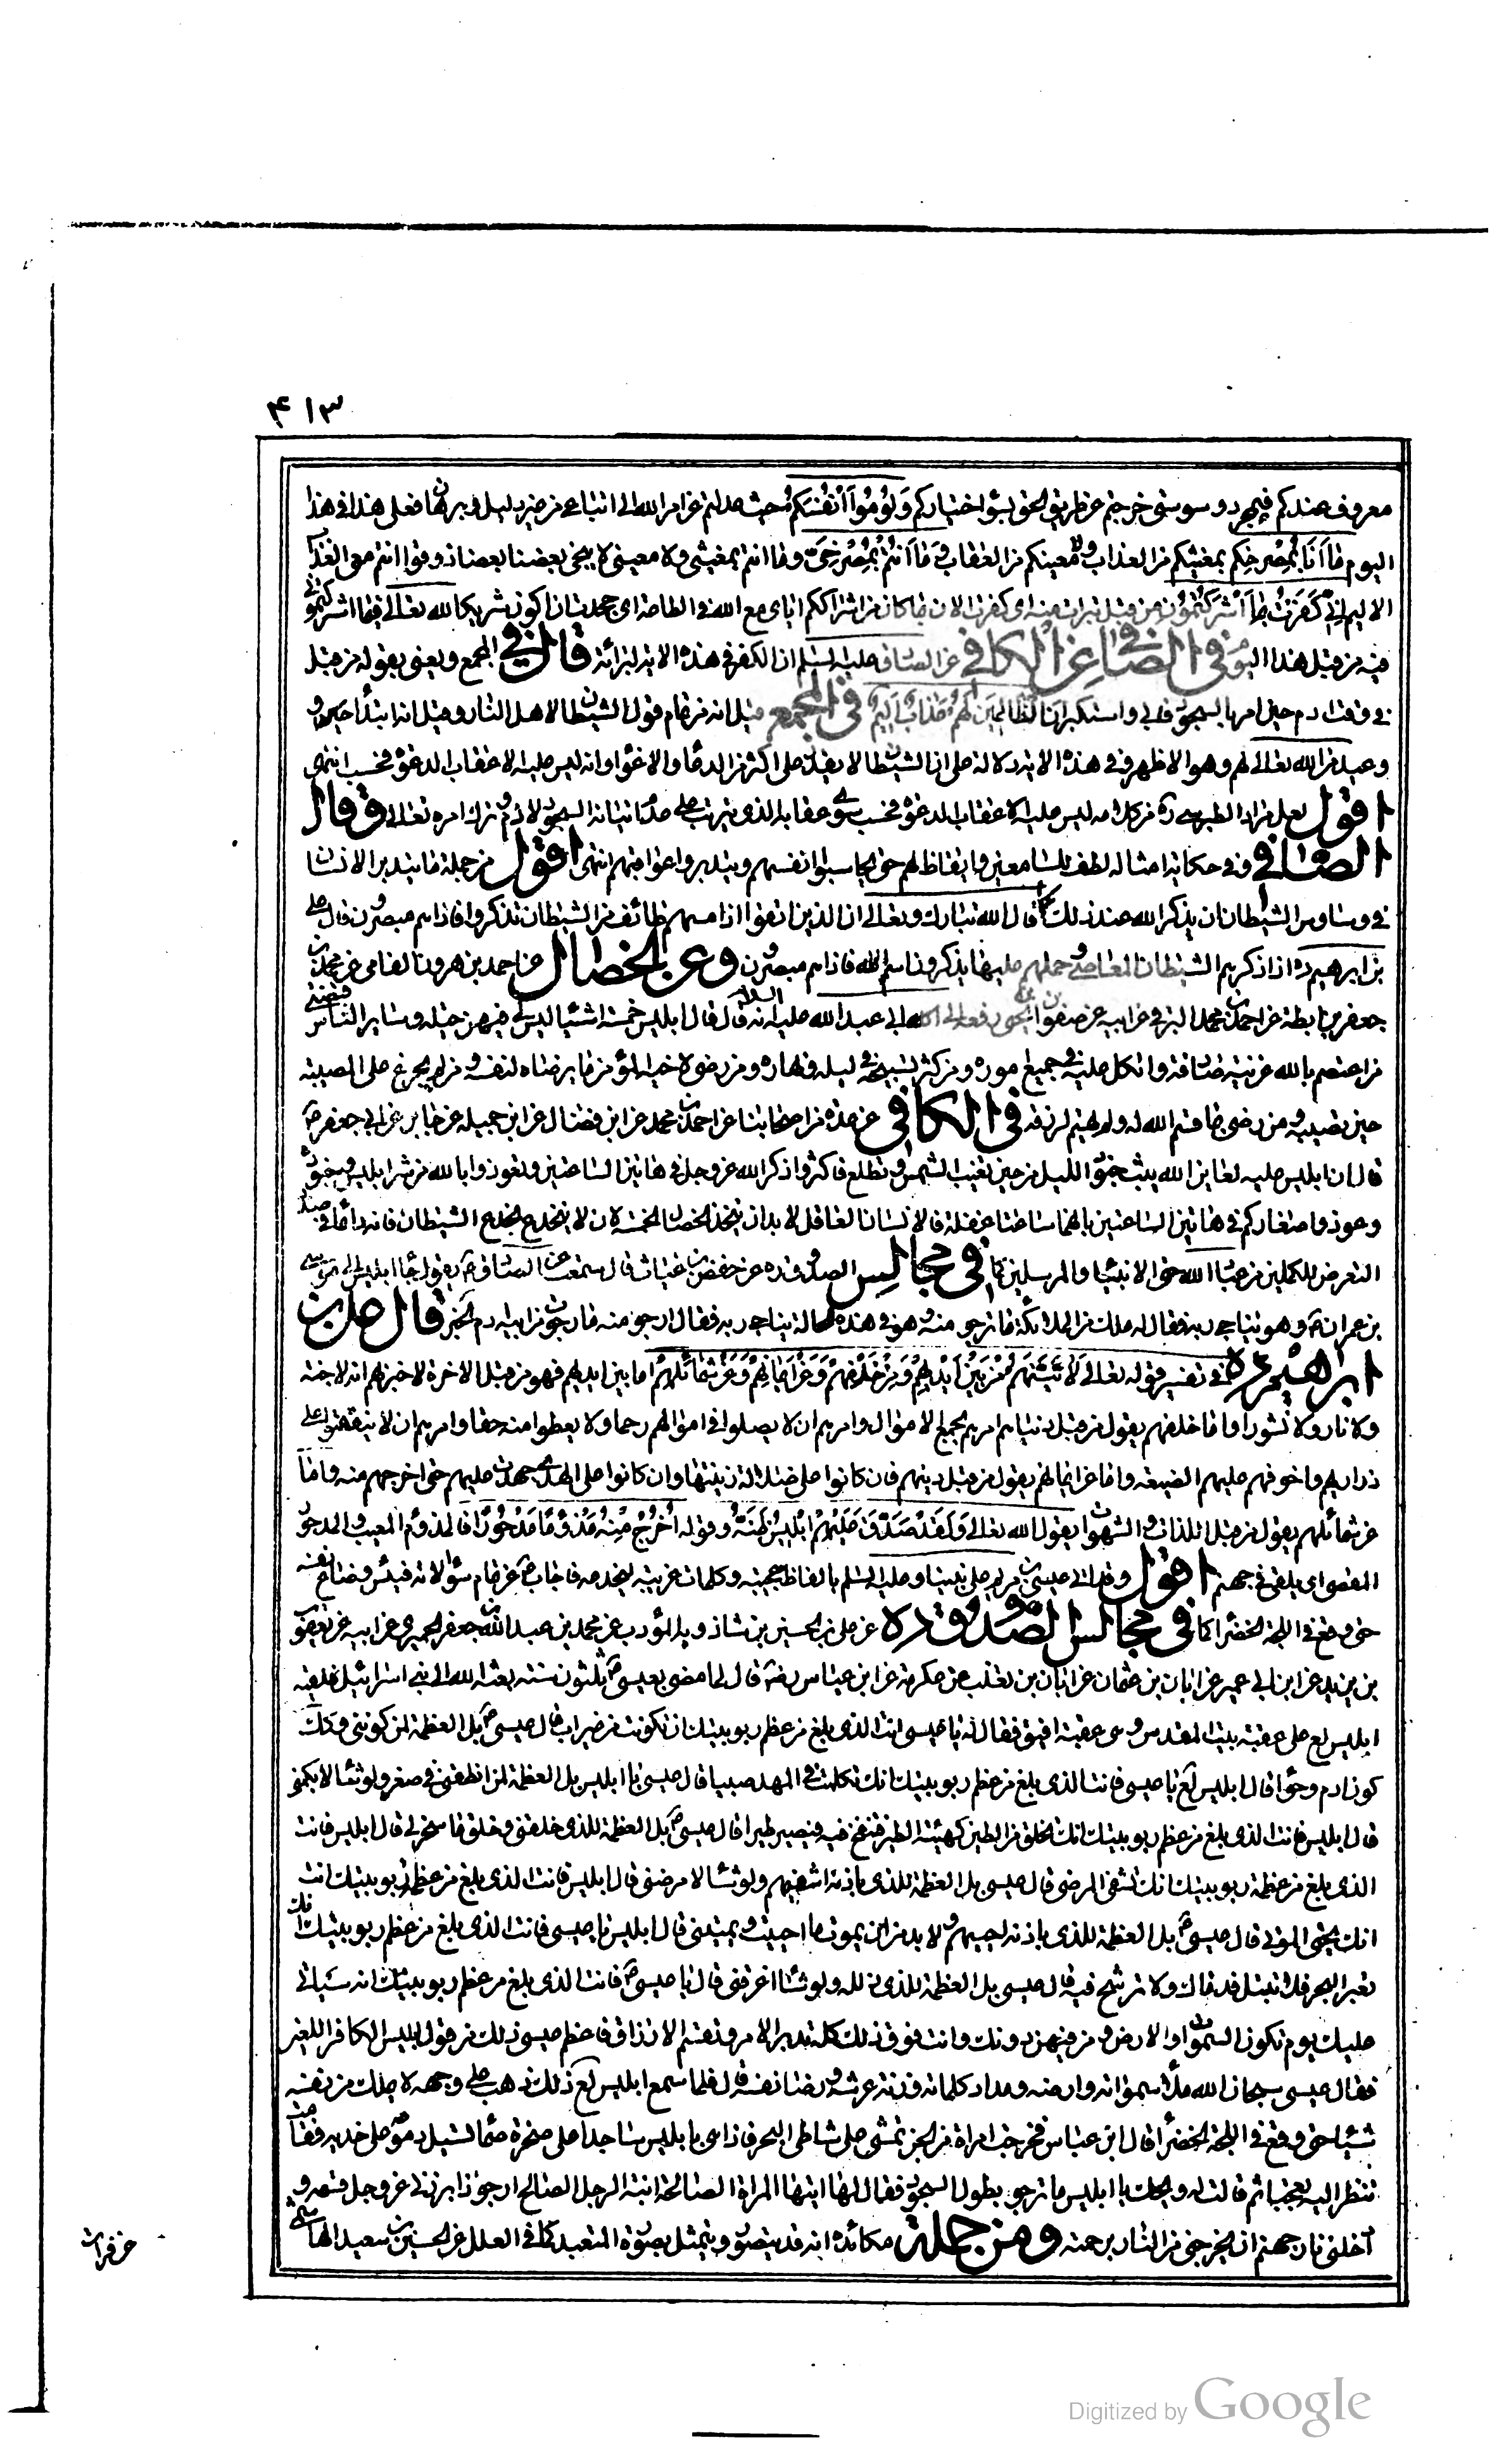 ۴۱۳
معروف عندكم فبمجرد وسوستي خرجتم عن طريق الحق بسوء اختياركم وَلُومُوا أَنْفُسَكُمْ حيث عدلتم عن امر الله الى اتباعي من غير دليل وبرهان فعلى هذا في هذا
اليوم مَا أَنَا بِمُصْرِخِكُم بمغيثكم من العذاب ولا معينكم من العقاب وَمَا أَنْتُمْ بِمُصْرِخِيَّ وما انتم بمغيثي ولا معيني لا ينجي بعضنا بعضا ذوقوا انتم معي العذاب
الاليم إِنِّي كَفَرْتُ بِمَا أَشْرَكْتُمُونِ مِن قبل تبرأت منه اي كفرت الان بما كان من اشراككم اياي مع الله في الطاعة اي جحدت ان اكون شريكا لله تعالى فيما اشركتموني
فيه من قبل هذا اليوم في الصافي عن الكافي عن الصادق عليه السلم ان الكفر في هذه الاية البرائة قال في المجمع ويعني بقوله من قبل
في وقت ادم حين امر بالسجود فابى واستكبر إِنَّ الظَّالِمِينَ لَهُمْ عَذَابٌ أَلِيمٌ في المجمع قيل انه من تمام قول الشيطان لاهل النار وقيل انه ابتداء خبر و
وعيد من الله تعالى لهم وهو الاظهر وفي هذه الاية دلالة على ان الشيطان لا يقدر على اكثر من الدعاء والاغواء وانه ليس عليه الا عقاب الدعوة فحسب انتهى
اقول لعل مراد الطبرسي ره من كلامه ليس عليه الا عقاب الدعوة فحسب سوى عقابه الذي يترتب على عدم اتيانه السجود لادم وترك امره تعالى وقال
الصافي وفي حكاية امثاله لطف للسامعين وايقاظ لهم حتى يحاسبوا انفسهم ويتدبروا عواقبهم انتهى اقول من جملة ما يتدبر الانسان
في وساوس الشيطان ان يذكر الله عند ذلك كما قال الله تبارك وتعالى ان الذين اتقوا اذا مسهم طائف من الشيطان تذكروا فاذا هم مبصرون قال علي
بن ابرهيم ره اذا ذكرهم الشيطان المعاصي وحملهم عليها يذكرون اسم الله فاذا هم مبصرون وعن الخصال عن احمد بن هرون الفامي عن محمد بن
جعفر بن بطة عن احمد بن محمد البرقي عن ابيه عن صفوان بن يحيى رفعه الى ابي عبد الله عليه السلام انه قال قال ابليس خمسة اشياء ليس لي فيهن حيلة وسائر الناس في قبضتي
من اعتصم بالله عن نية صادقة واتكل عليه في جميع اموره ومن كثر تسبيحه في ليله ونهاره ومن رضي لاخيه المؤمن ما يرضاه لنفسه ومن لم يجزع على المصيبة
حين تصيبه ومن رضي بما قسم الله له ولم يهتم لرزقه في الكافي عن عدة من اصحابنا عن احمد بن محمد عن ابن فضال عن ابن جميلة عن جابر عن ابي جعفر ع
قال ان ابليس عليه لعاين الله يبث جنود الليل من حين تغيب الشمس وتطلع فاكثروا ذكر الله عز وجل في هاتين الساعتين وتعوذوا بالله من شر ابليس وجنوده
وعوذوا صغاركم في هاتين الساعتين فانهما ساعتا غفلة فالانسان الغافل لا بد ان يتخذ الخصال الخمسة لان لا ينخدع بخدع الشيطان فانه دائما في صدد
التعرض للكملين من عباد الله حتى الانبياء والمرسلين كما في مجالس الصدوق ره عن حفص بن غياث قال سمعت عن الصادق ع يقول جاء ابليس الى موسى
بن عمران ع وهو يناجي ربه فقال له ملك من الملائكة ما ترجو منه وهو في هذه الحالة يناجي ربه فقال ارجو منه ما رجوت من ابيه ادم الخبر قال علي بن
ابراهيم ره في تفسير قوله تعالى لَآتِيَنَّهُمْ مِنْ بَيْنِ أَيْدِيهِمْ وَمِنْ خَلْفِهِمْ وَعَنْ أَيْمَانِهِمْ وَعَنْ شَمَائِلِهِمْ اما بين ايديهم فهو من قبل الاخرة لاخبرهم انه لا جنة
ولا نار ولا نشور واما خلفهم يقول من قبل دنياهم امرهم بجمع الاموال وامرهم ان لا يصلوا في اموالهم رحما ولا يعطوا منه حقا وامرهم ان لا ينفقوا على
ذراريهم واخوفهم عليهم الضيعة واما عن ايمانهم يقول من قبل دينهم فان كانوا على ضلالة زينتها وان كانوا على الهدى جهدت عليهم حتى اخرجهم منه واما
عن شمائلهم يقول من قبل اللذات والشهوات يقول الله تعالى وَلَقَدْ صَدَّقَ عَلَيْهِمْ إِبْلِيسُ ظَنَّهُ وقوله اُخْرُجْ مِنْهُ مَذْؤُمًا مَدْحُورًا فالمذؤم المعيب والمدحور
المقصى اي يلقى في جهنم اقول وقد اتى عيسى بن مريم على نبينا وعليه السلم بالفاظ عجيبة وكلمات غريبة ليخدعه فاجاب ع عن تمام سؤالاته فيئس وضاع نفسه
حتى وقع في اللجة الخضراء كما في مجالس الصدوق ره عن علي بن الحسين بن شاذويه المؤدب عن محمد بن عبد الله بن جعفر الحميري عن ابيه عن يعقوب
بن يزيد عن ابن ابي عمير عن ابان بن عثمان عن ابان بن تغلب عن عكرمة عن ابن عباس رضه قال لما مضى بعيسى ع ثلثون سنة بعثه الله الى بني اسرائيل فلقيه
ابليس لع على عقبة بيت المقدس وهي عقبة افيق فقال له يا عيسى انت الذي بلغ من عظم ربوبيتك ان تكونت من غير اب قال عيسى ع بل العظمة لمن كونني وكذلك
كون ادم وحوا قال ابليس لع يا عيسى فانت الذي بلغ من عظم ربوبيتك انك تكلمت في المهد صبيا قال عيسى يا ابليس بل العظمة لمن انطقني في صغري ولو شاء لابكمني
قال ابليس فانت الذي بلغ من عظم ربوبيتك انك تخلق من الطين كهيئة الطير فتنفخ فيه فيصير طيرا قال عيسى ع بل العظمة للذي خلقني وخلق ما سخر لي قال ابليس فانت
الذي بلغ من عظمة ربوبيتك انك تشفي المرضى قال عيسى بل العظمة للذي باذنه اشفيهم ولو شاء لامرضني قال ابليس فانت الذي بلغ من عظم ربوبيتك انت
انك تحيي الموتى قال عيسى ع بل العظمة للذي باذنه احييهم ولا بد من ان يموت ما احييت ويميتني قال ابليس يا عيسى فانت الذي بلغ من عظم ربوبيتك انك
تعبر البحر فلا تبتل قدماك ولا ترسخ فيه قال عيسى بل العظمة للذي ذلله ولو شاء اغرقني قال يا عيسى ع فانت الذي بلغ من عظم ربوبيتك انه سياتي
عليك يوم تكون السموات والارض ومن فيهن دونك وانت فوق ذلك كله تدبر الامر وتقسم الارزاق فاعظم عيسى ذلك من قول ابليس الكافر اللعين
فقال عيسى سبحان الله ملأ سمواته وارضه ومداد كلماته وزنة عرشه ورضا نفسه قال فلما سمع ابليس لع ذلك ذهب على وجهه لا يملك من نفسه
شيئا حتى وقع في اللجة الخضراء قال ابن عباس فخرجت امراة من الجن تمشي على شاطئ البحر فاذا هي بابليس ساجدا على صخرة صماء تسيل دموعه على خديه فقامت
تنظر اليه تعجبا ثم قالت له ويحك يا ابليس ما ترجو بطول السجود فقال لها ايتها المراة الصالحة ابنة الرجل الصالح ارجو اذا بر ربي عز وجل قسمه و
ادخلني نار جهنم ان يخرجني من النار برحمته ومن جملة مكائده انه قد يتصور ويتمثل بصورة المتعبد كما في العلل عن الحسين بن سعيد الهاشمي
عن فرات
Digitized by Google